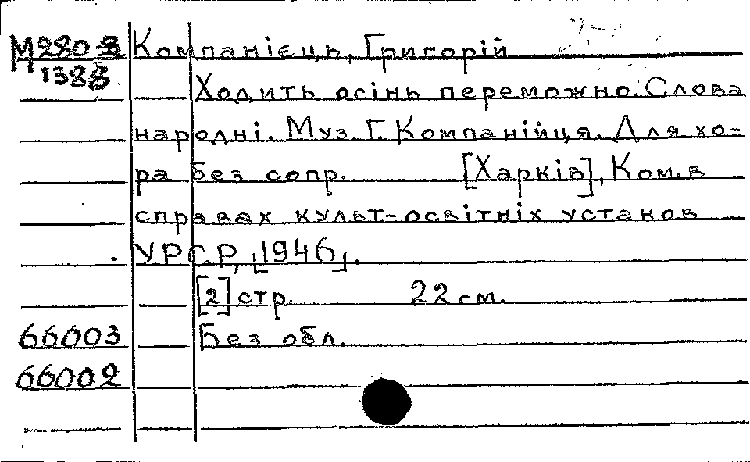 М280-3 Компанієць, Григорій
1388
Ходить осінь переможно. Слова
народні. Муз. Г. Компанійця. Для хо-
ра без сопр. [Харків], Ком. в
справах культ-освітніх установ
УРСР, [1946].
[2] стр. 22 см.
66003 Без обл.
66002